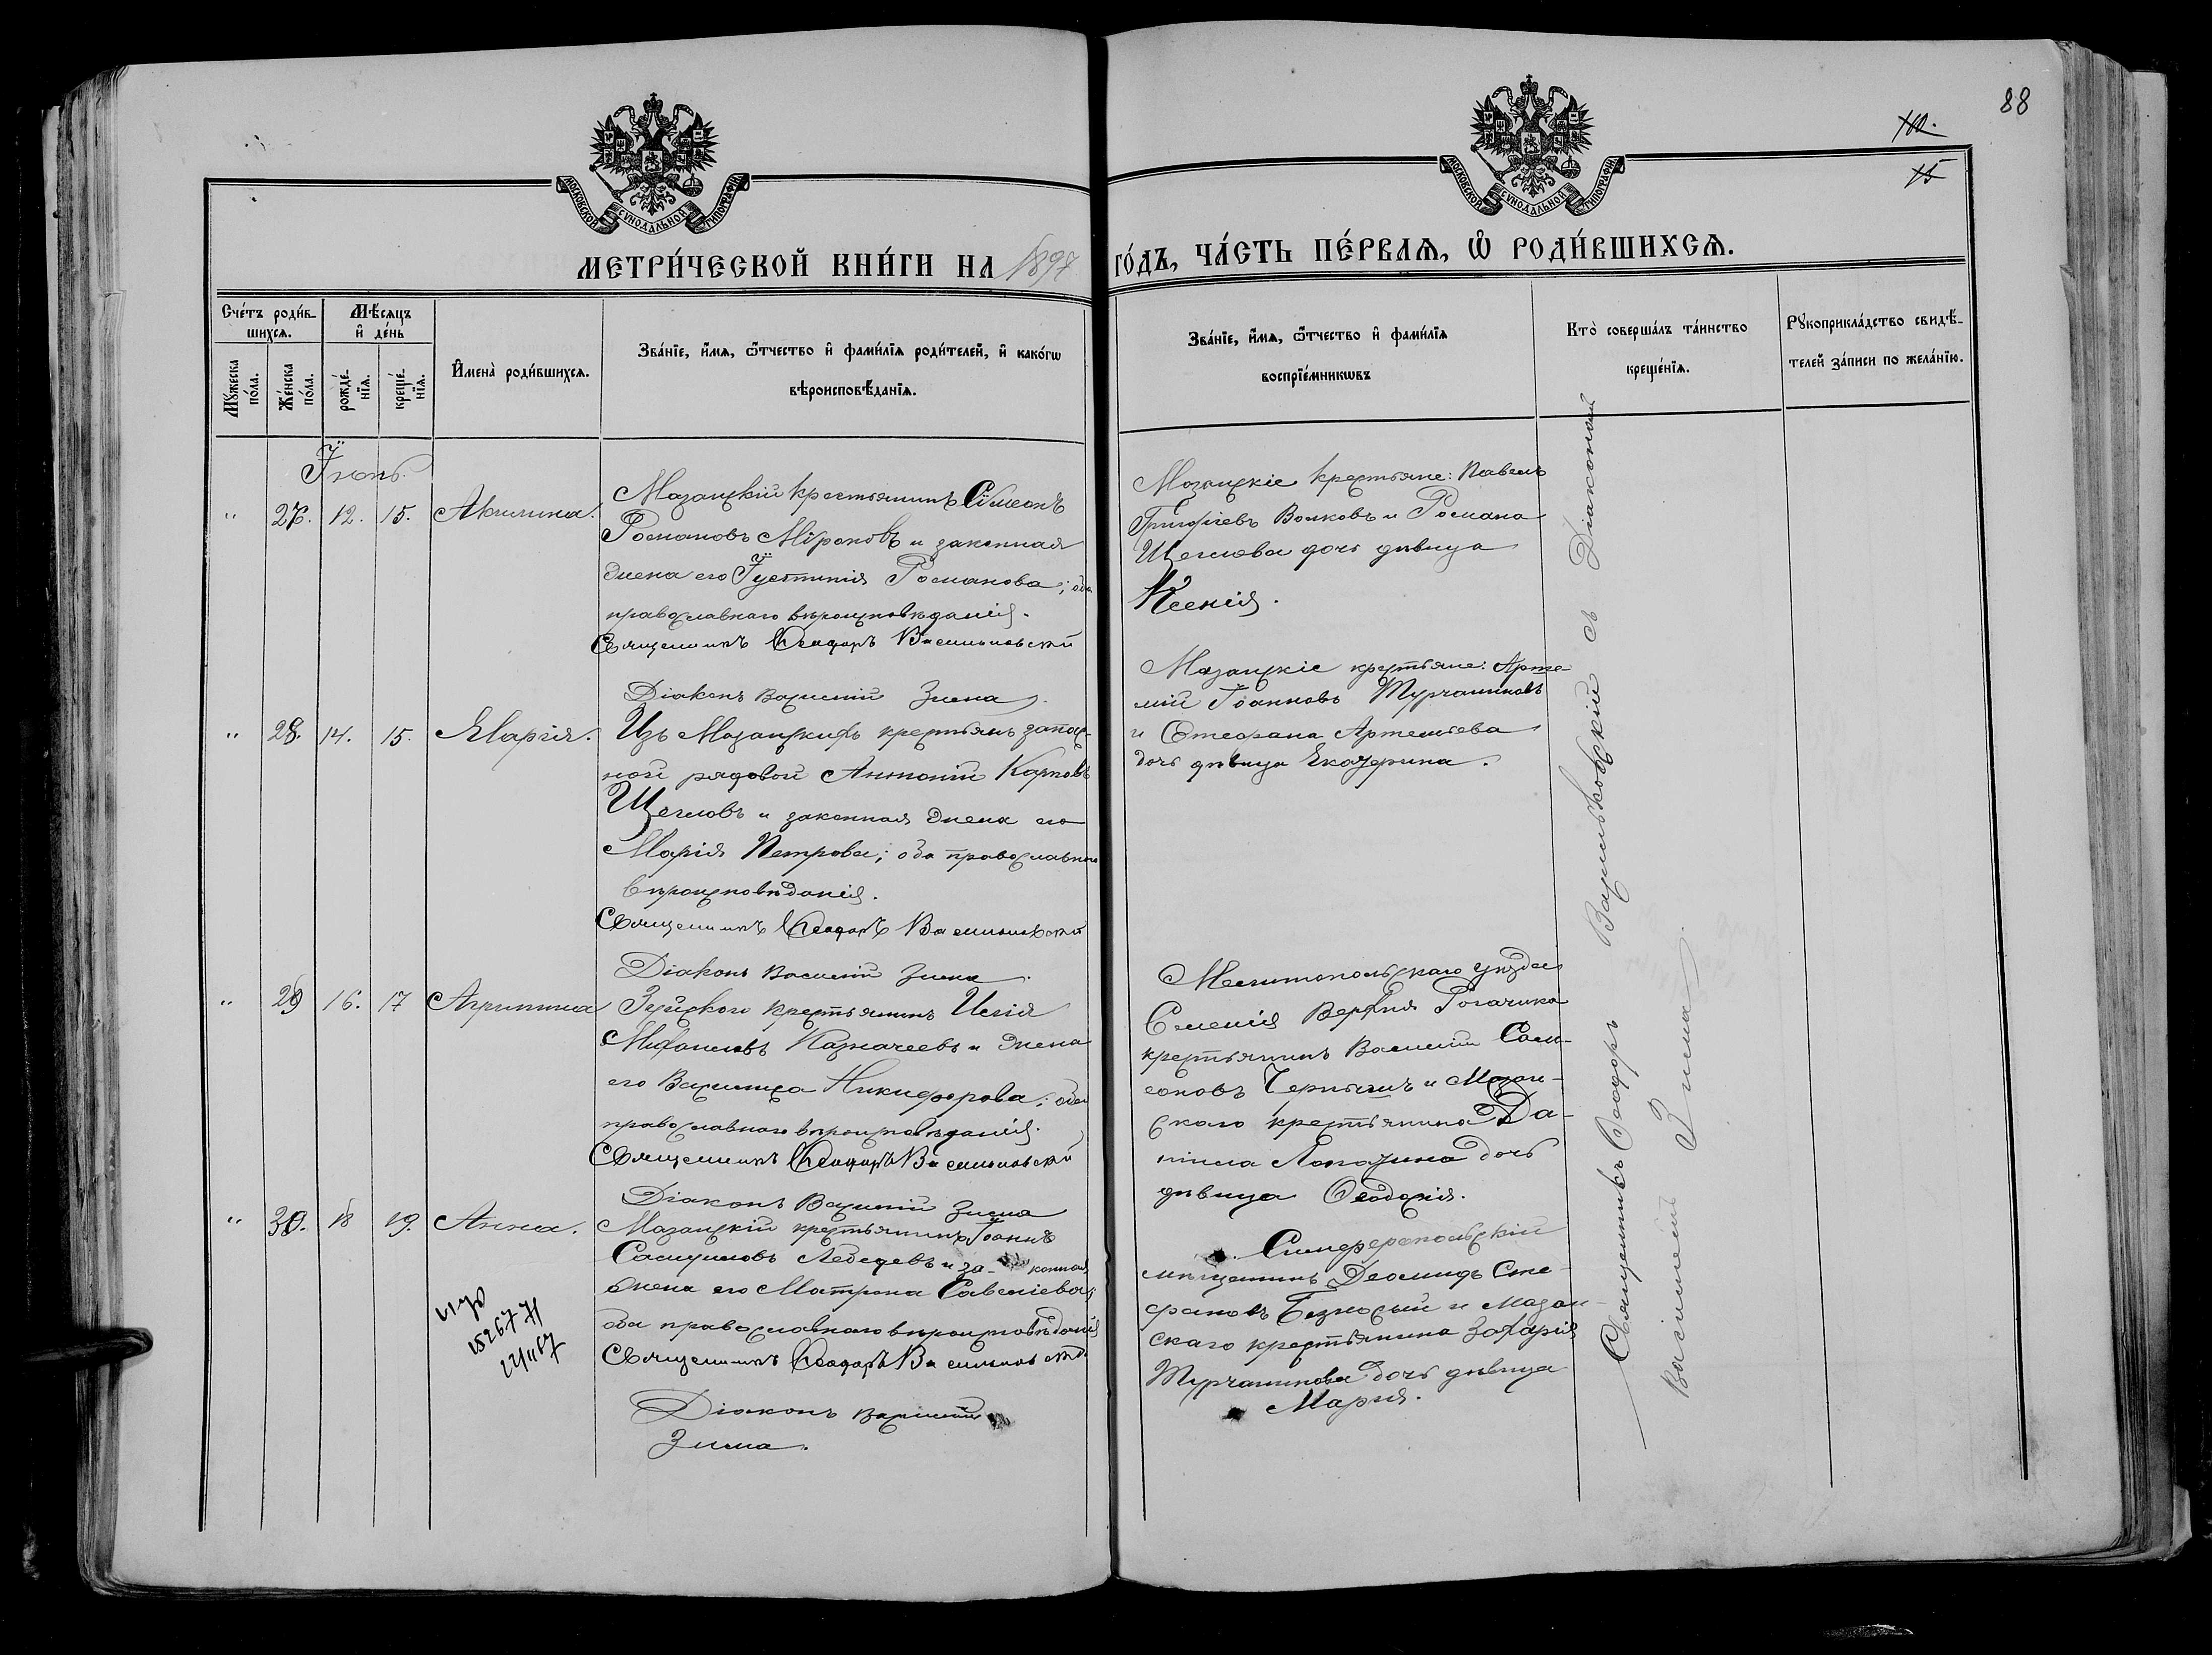 88
110.
15
МОСКОВСКОЙ СѴНОДАЛЬНОЙ ТИПОГРАФІИ
МОСКОВСКОЙ СѴНОДАЛЬНОЙ ТИПОГРАФІИ
МЕТРИ́ЧЕСКОЙ КНИ́ГИ НА 1897 ГО́ДЪ, ЧА́СТЬ ПЕ́РВАѦ, Ѡ҆ РОДИ́ВШИХСѦ.
Сче́тъ роди́в-
шихсѧ.
Мѣ́сѧцъ
и҆ де́нь
Мꙋ́жеска
по́ла.
Же́нска
по́ла.
рожде́-
нїѧ.
креще́-
нїѧ.
И҆мена̀ роди́вшихсѧ.
Зва́нїе, и҆́мѧ, ѻ҆́тчество и҆ фами́лїѧ роди́телей, и҆ како́гѡ
вѣроисповѣ́данїѧ.
Зва́нїе, и҆́мѧ, ѻ҆́тчество и҆ фами́лїѧ
воспрїе́мникѡвъ
Кто̀ соверша́лъ та́инство
креще́нїѧ.
Рꙋкоприкла́дство свидѣ́-
телей за́писи по жела́нїю.
Іюнь
" 27. 12. 15. Акилина.
Мазанскій крестьянинъ Сѵмеонъ
Романовъ Міроновъ и законная
жена его Іустинія Романова; оба
православнаго вѣроисповѣданія.
Священникъ Ѳеодоръ Васильковскій
Діаконъ Василій Зима
Мазанскіе крестьяне: Павелъ
Григоріевъ Волковъ и Романа
Щеглова дочь дѣвица
Ксенія.
" 28. 14. 15. Марія.
Изъ Мазанскихъ крестьянъ запас-
ной рядовой Антоній Карповъ
Щегловъ и законная жена его
Марія Петрова; оба православнаго
вѣроисповѣданія.
Священникъ Ѳеодоръ Васильковскій
Діаконъ Василій Зима.
Мазанскіе крестьяне: Арте-
мій Іоанновъ Турчаниновъ
и Стефана Артемьева
дочь дѣвица Екатерина.
" 29 16. 17 Агрипина
Зуйскои крестьянинъ Илія
Михаиловъ Казначеевъ и жена
его Василиса Никифорова; оба
православнаго вѣроисповѣданія.
Священникъ Ѳеодоръ Васильковскій
Діаконъ Василій Зима
Мелитопольскаго уѣзда
Селенія Верхня Рогачика
крестьянинъ Василій Сам-
соновъ Чернышъ и Мазан-
скаго крестьянина Да-
ніила Лопатина дочь
дѣвица Ѳеодосія.
" 30. 18 19. Анна.
Мазанскій крестьянинъ Іоаннъ
Самуиловъ Лебедевъ и за- конная
жена его Матрона Савеліева;
оба православнаго вѣроисповѣданія
Священникъ Ѳеодоръ Васильковскій
Діаконъ Василій
Зима.
Симферопольскій
мѣщанинъ Деомидъ Сте-
фановъ Безносый и Мазан-
скаго крестьянина Захарія
Турчанинова дочь дѣвица
Марія.
Священникъ Ѳеодоръ Васильковскій съ Діакономъ
Василіемъ Зима.
1526771